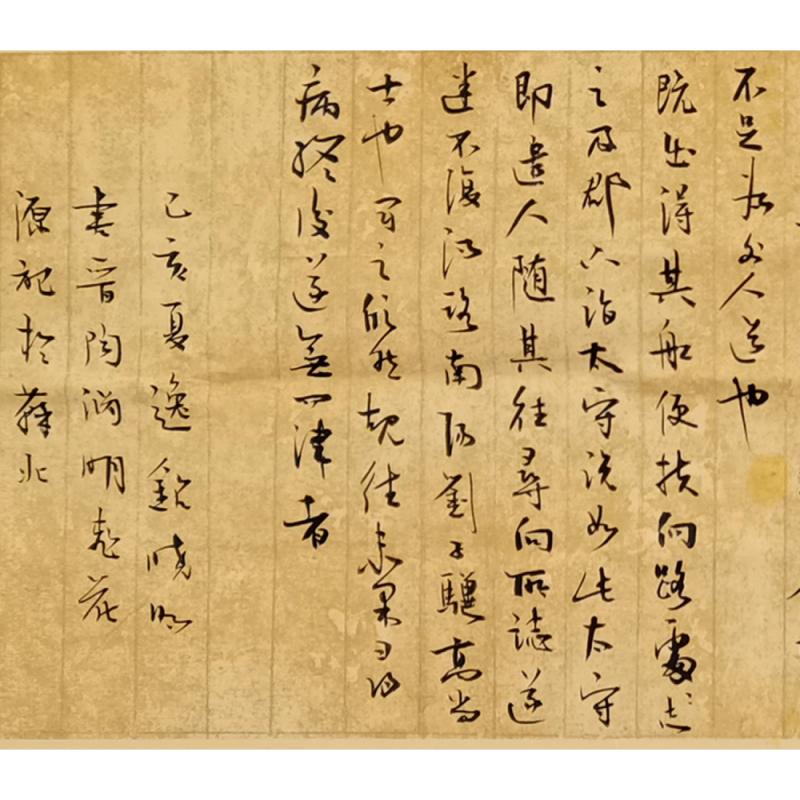 不足為外人道也
既出得其船便扶向路處〻志
之及郡下詣太守說如此太守
即遣人隨其往尋向所誌遂
迷不復得路南陽劉子驥高尚
士也聞之欣然規往未果尋
病終後遂無問津者
己亥夏逸曉
書晉陶淵明桃花
源記於蘇北